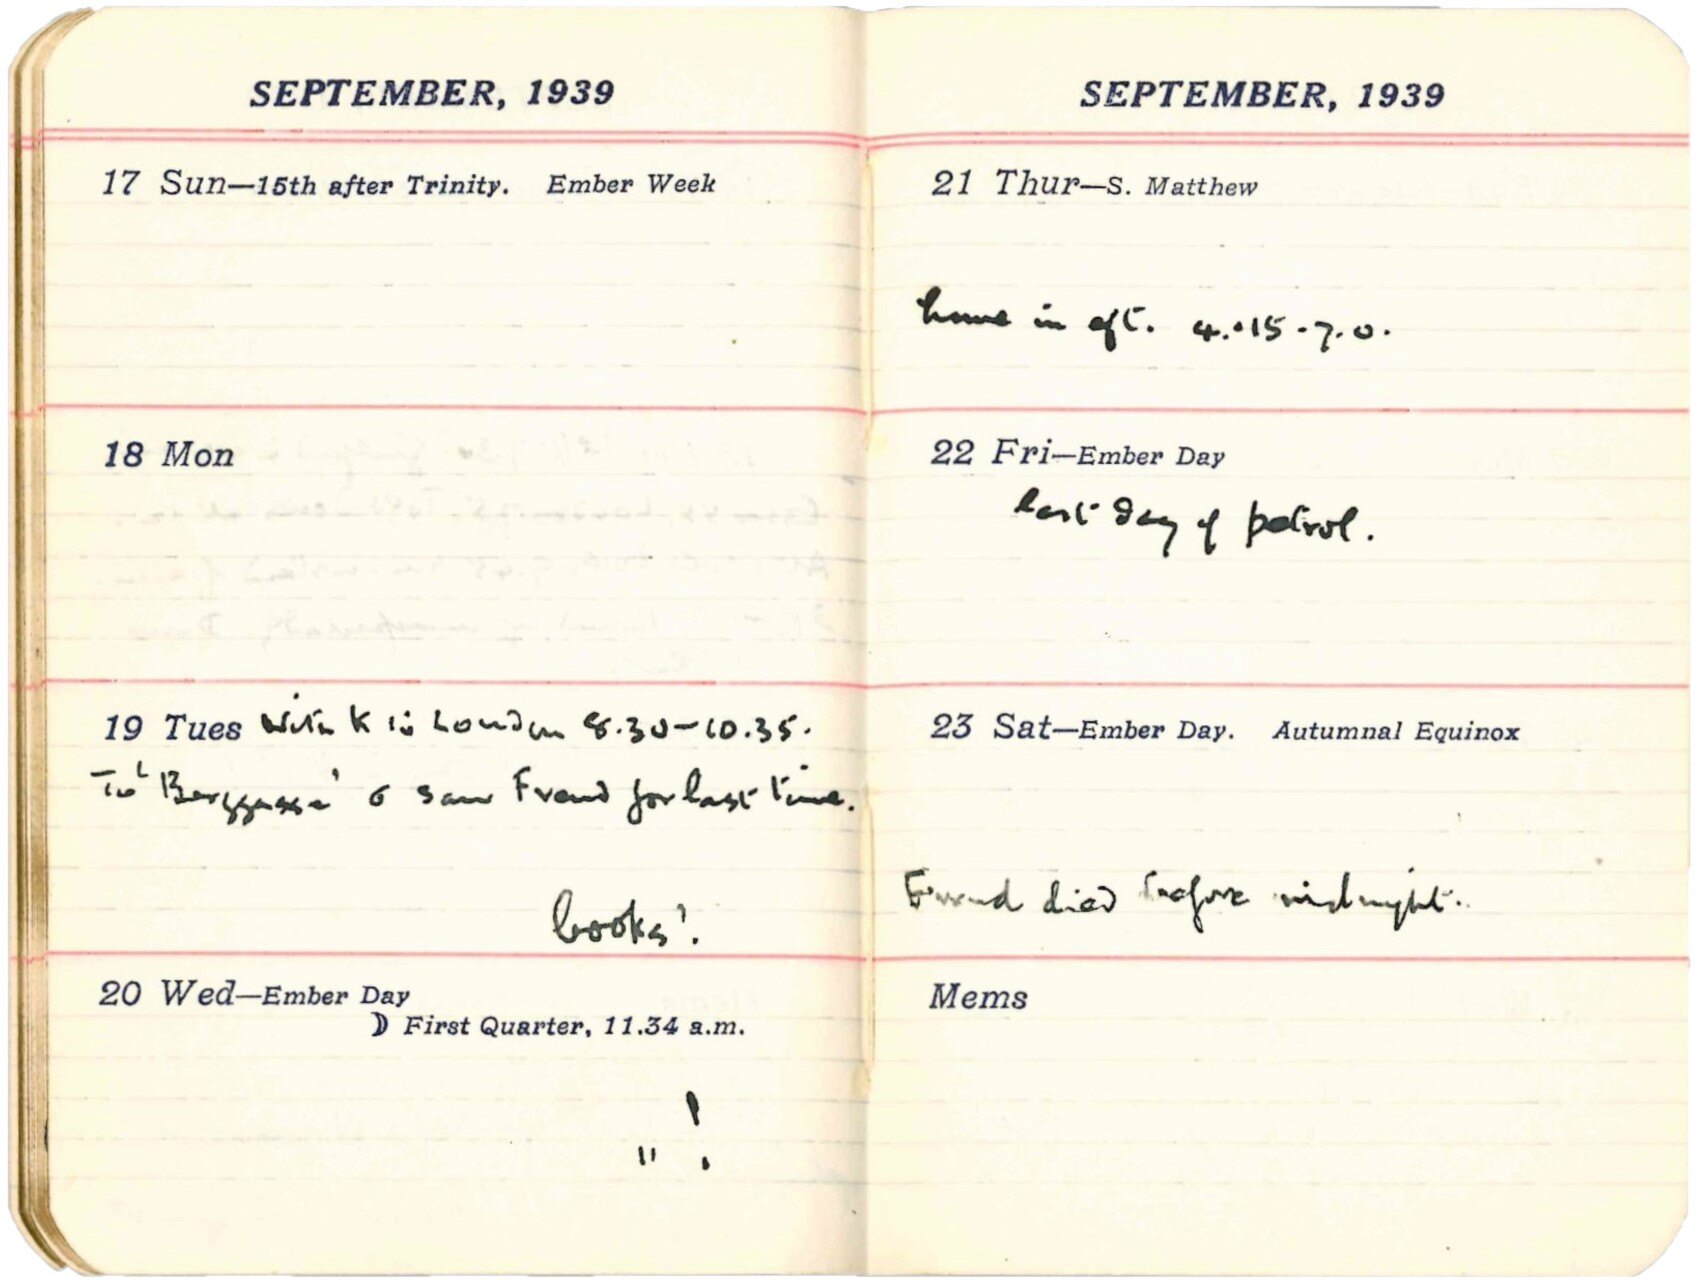 SEPTEMBER, 1939
17 Sun—15th after Trinity. Ember Week
18 Mon
19 Tues With K in London 8.30–10.35.
To 'Berggasse' & saw Freud for last time.
books!
20 Wed—Ember Day
☽ First Quarter, 11.34 a.m.
" !
SEPTEMBER, 1939
21 Thur—S. Matthew
home in aft. 4.15-7.0.
22 Fri—Ember Day
last day of petrol.
23 Sat—Ember Day. Autumnal Equinox
Freud died before midnight.
Mems